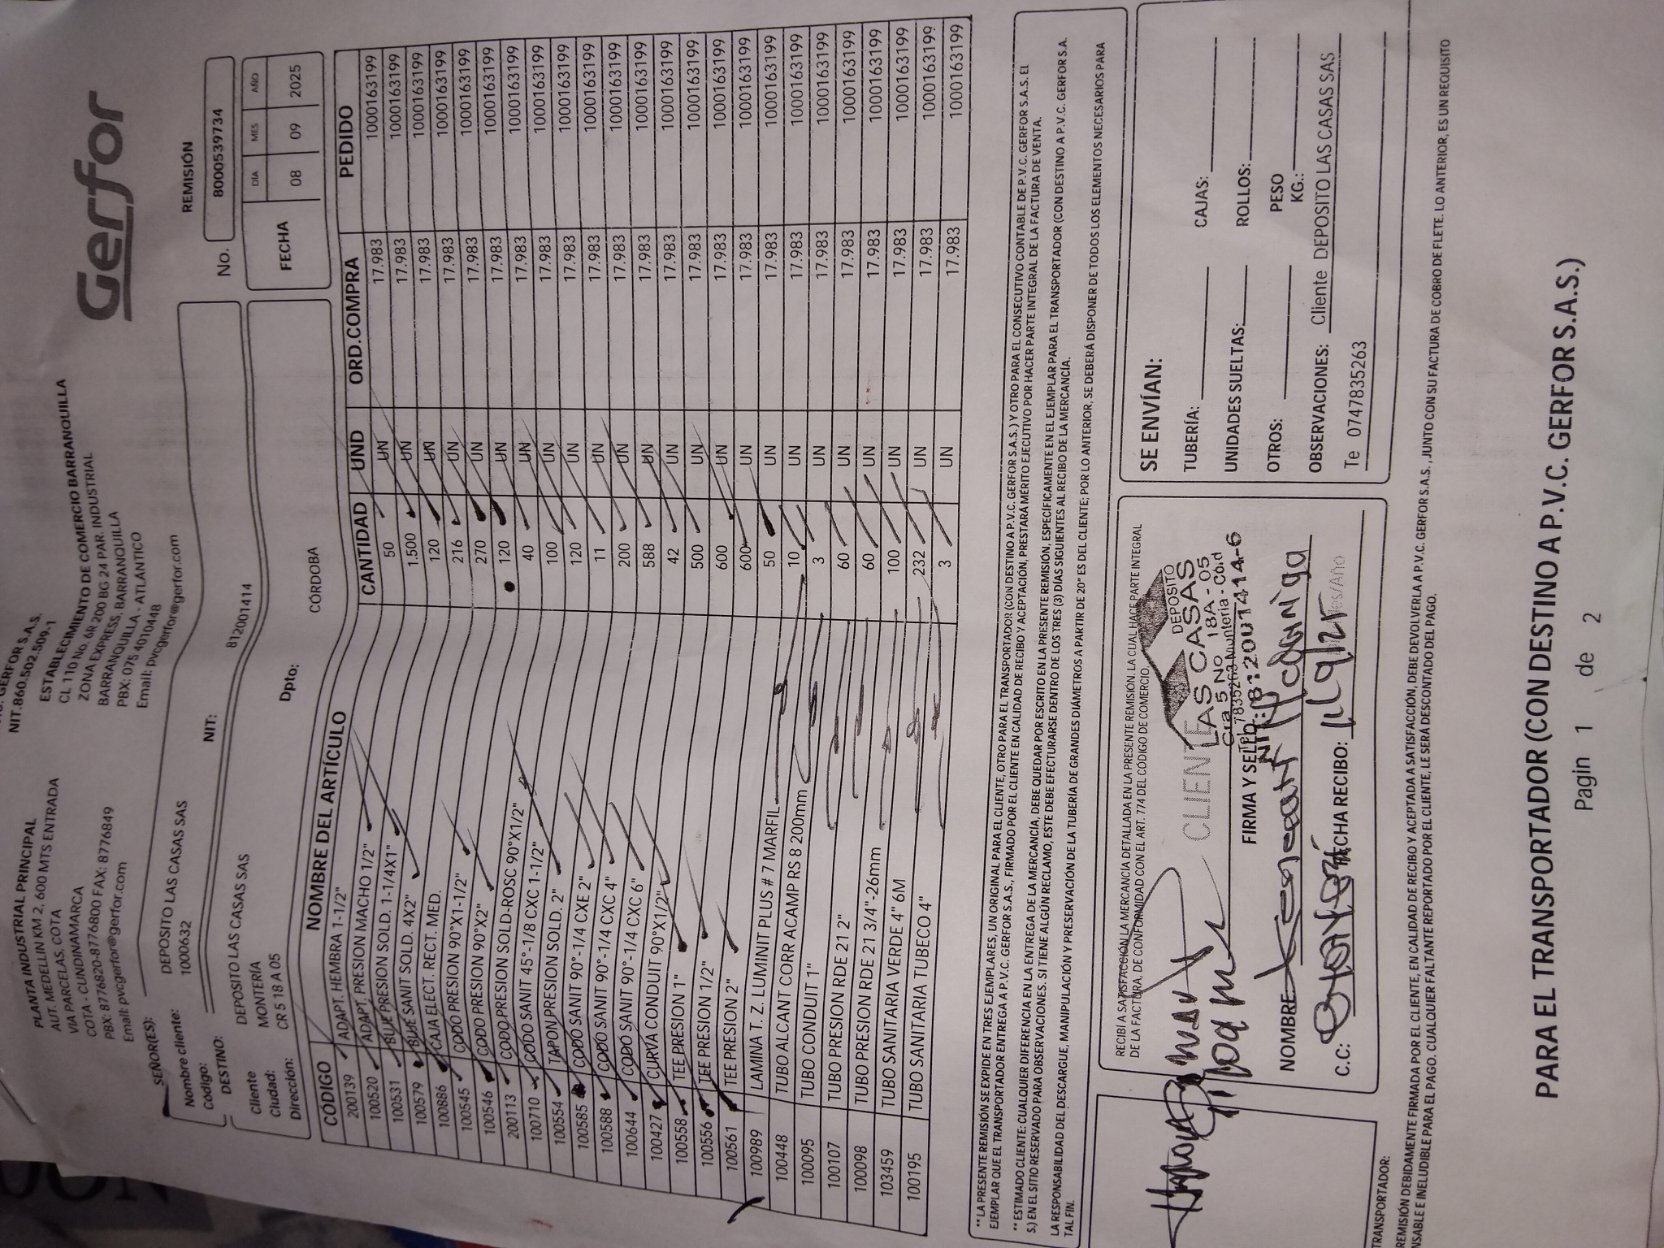 GERFOR S.A.S.
NIT.860.502.509-1
PLANTA INDUSTRIAL PRINCIPAL
AUT. MEDELLIN KM 2, 600 MTS ENTRADA
VIA PARCELAS, COTA
COTA - CUNDINAMARCA
PBX: 8776820-8776800 FAX: 8776849
Email: pvcgerfor@gerfor.com
ESTABLECIMIENTO DE COMERCIO BARRANQUILLA
CL 110 No. 6R 200 BG 24 PAR. INDUSTRIAL
ZONA EXPRESS, BARRANQUILLA
BARRANQUILLA - ATLANTICO
PBX: 075 4010448
Email: pvcgerfor@gerfor.com
Gerfor
REMISIÓN
No. 8000539734
FECHA DIA MES AÑO
08 09 2025
SEÑOR(ES):
Nombre cliente: DEPOSITO LAS CASAS SAS
Código: 1000632 NIT: 812001414
DESTINO:
Cliente DEPOSITO LAS CASAS SAS
Ciudad: MONTERÍA Dpto: CÓRDOBA
Dirección: CR 5 18 A 05
CÓDIGO NOMBRE DEL ARTÍCULO CANTIDAD UND ORD.COMPRA PEDIDO
200139 ADAPT. HEMBRA 1-1/2" 50 UN 17.983 1000163199
100520 ADAPT. PRESION MACHO 1/2" 1.500 UN 17.983 1000163199
100531 BUJE PRESION SOLD. 1-1/4X1" 120 UN 17.983 1000163199
100579 BUJE SANIT SOLD. 4X2" 216 UN 17.983 1000163199
100886 CAJA ELECT. RECT. MED. 270 UN 17.983 1000163199
100545 CODO PRESION 90°X1-1/2" 120 UN 17.983 1000163199
100546 CODO PRESION 90°X2" 40 UN 17.983 1000163199
200113 CODO PRESION SOLD-ROSC 90°X1/2" 100 UN 17.983 1000163199
100710 CODO SANIT 45°-1/8 CXC 1-1/2" 120 UN 17.983 1000163199
100554 TAPON PRESION SOLD. 2" 11 UN 17.983 1000163199
100585 CODO SANIT 90°-1/4 CXE 2" 200 UN 17.983 1000163199
100588 CODO SANIT 90°-1/4 CXC 4" 588 UN 17.983 1000163199
100644 CODO SANIT 90°-1/4 CXC 6" 42 UN 17.983 1000163199
100427 CURVA CONDUIT 90°X1/2" 500 UN 17.983 1000163199
100558 TEE PRESION 1" 600 UN 17.983 1000163199
100556 TEE PRESION 1/2" 600 UN 17.983 1000163199
100561 TEE PRESION 2" 50 UN 17.983 1000163199
100989 LAMINA T. Z. LUMINIT PLUS # 7 MARFIL 10 UN 17.983 1000163199
100448 TUBO ALCANT CORR ACAMP RS 8 200mm 3 UN 17.983 1000163199
100095 TUBO CONDUIT 1" 60 UN 17.983 1000163199
100107 TUBO PRESION RDE 21 2" 60 UN 17.983 1000163199
100098 TUBO PRESION RDE 21 3/4"-26mm 100 UN 17.983 1000163199
103459 TUBO SANITARIA VERDE 4" 6M 232 UN 17.983 1000163199
100195 TUBO SANITARIA TUBECO 4" 3 UN 17.983 1000163199
** LA PRESENTE REMISIÓN SE EXPIDE EN TRES EJEMPLARES, UN ORIGINAL PARA EL CLIENTE, OTRO PARA EL TRANSPORTADOR (CON DESTINO A P.V.C. GERFOR S.A.S.) Y OTRO PARA EL CONSECUTIVO CONTABLE DE P.V.C. GERFOR S.A.S. EL
EJEMPLAR QUE EL TRANSPORTADOR ENTREGA A P.V.C. GERFOR S.A.S., FIRMADO POR EL CLIENTE EN CALIDAD DE RECIBO Y ACEPTACIÓN, PRESTARÁ MÉRITO EJECUTIVO POR HACER PARTE INTEGRAL DE LA FACTURA DE VENTA.
** ESTIMADO CLIENTE: CUALQUIER DIFERENCIA EN LA ENTREGA DE LA MERCANCIA, DEBE QUEDAR POR ESCRITO EN LA PRESENTE REMISIÓN, ESPECÍFICAMENTE EN EL EJEMPLAR PARA EL TRANSPORTADOR (CON DESTINO A P.V.C. GERFOR S.A.
S.) EN EL SITIO RESERVADO PARA OBSERVACIONES. SI TIENE ALGÚN RECLAMO, ESTE DEBE EFECTURARSE DENTRO DE LOS TRES (3) DÍAS SIGUIENTES AL RECIBO DE LA MERCANCÍA.
LA RESPONSABILIDAD DEL DESCARGUE, MANIPULACIÓN Y PRESERVACIÓN DE LA TUBERÍA DE GRANDES DIÁMETROS A PARTIR DE 20" ES DEL CLIENTE; POR LO ANTERIOR, SE DEBERÁ DISPONER DE TODOS LOS ELEMENTOS NECESARIOS PARA
TAL FIN.
RECIBÍ A SATISFACCIÓN LA MERCANCIA DETALLADA EN LA PRESENTE REMISIÓN, LA CUAL HACE PARTE INTEGRAL
DE LA FACTURA, DE CONFORMIDAD CON EL ART. 774 DEL CÓDIGO DE COMERCIO
CLIENTE
DEPOSITO
LAS CASAS
Cra 5 No 18A-05
7835263 Montería - Cord
NIT: 812001414-6
FIRMA Y SELLO:
NOMBRE
C.C: FECHA RECIBO: 11/9/25
SE ENVÍAN:
TUBERÍA: CAJAS:
UNIDADES SUELTAS: ROLLOS:
OTROS: PESO KG.:
OBSERVACIONES: Cliente DEPOSITO LAS CASAS SAS
Te 0747835263
TRANSPORTADOR:
REMISIÓN DEBIDAMENTE FIRMADA POR EL CLIENTE, EN CALIDAD DE RECIBO Y ACEPTADA A SATISFACCIÓN, DEBE DEVOLVERLA A P.V.C. GERFOR S.A.S., JUNTO CON SU FACTURA DE COBRO DE FLETE. LO ANTERIOR, ES UN REQUISITO
NSABLE E INELUDIBLE PARA EL PAGO. CUALQUIER FALTANTE REPORTADO POR EL CLIENTE, LE SERÁ DESCONTADO DEL PAGO.
PARA EL TRANSPORTADOR (CON DESTINO A P.V.C. GERFOR S.A.S.)
Pagin 1 de 2